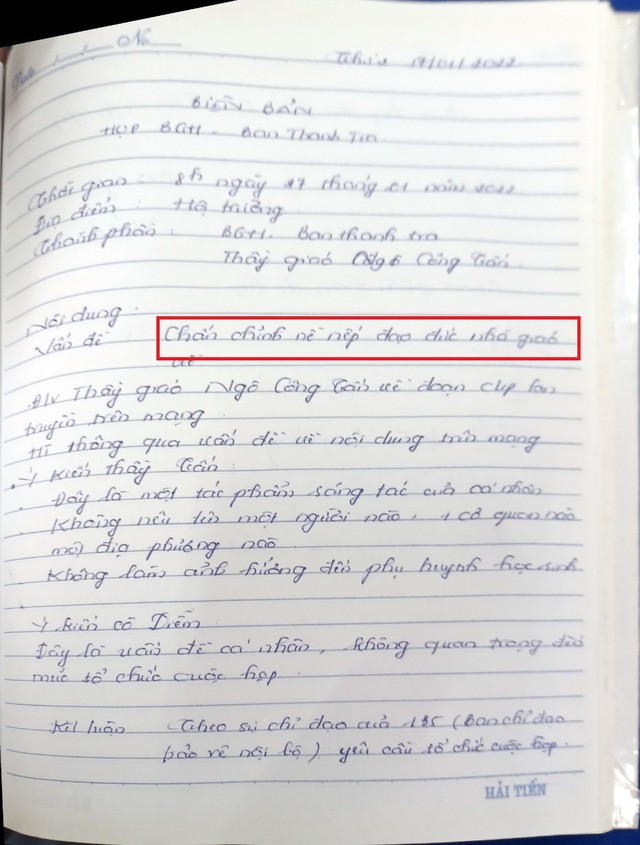 Date No
Thứ 2 17/01/2022
BIÊN BẢN
HỌP BGH - Ban Thanh Tra
Thời gian : 8h ngày 17 tháng 01 năm 2022
Địa điểm : Hộ trường
Thành phần : BGH. Ban thanh tra
Thầy giáo Ngô Công Tấn.
Nội dung :
Vấn đề Chấn chỉnh nề nếp đạo đức nhà giáo
về
Đ/v Thầy giáo Ngô Công Tấn về đoạn clip lan
truyền trên mạng
HT thông qua vấn đề về nội dung trên mạng
. Ý kiến thầy Tấn :
. Đây là một tác phẩm sáng tác của cá nhân
. Không nêu tên một người nào, 1 cơ quan nào
một địa phương nào
. Không làm ảnh hưởng đến phụ huynh học sinh
Ý kiến cô Diễn :
Đây là vấn đề cá nhân, không quan trọng đến
mức tổ chức cuộc họp.
Kết luận Theo sự chỉ đạo của (Ban chỉ đạo
bảo vệ nội bộ) yêu cầu tổ chức cuộc họp.
HẢI TIẾN